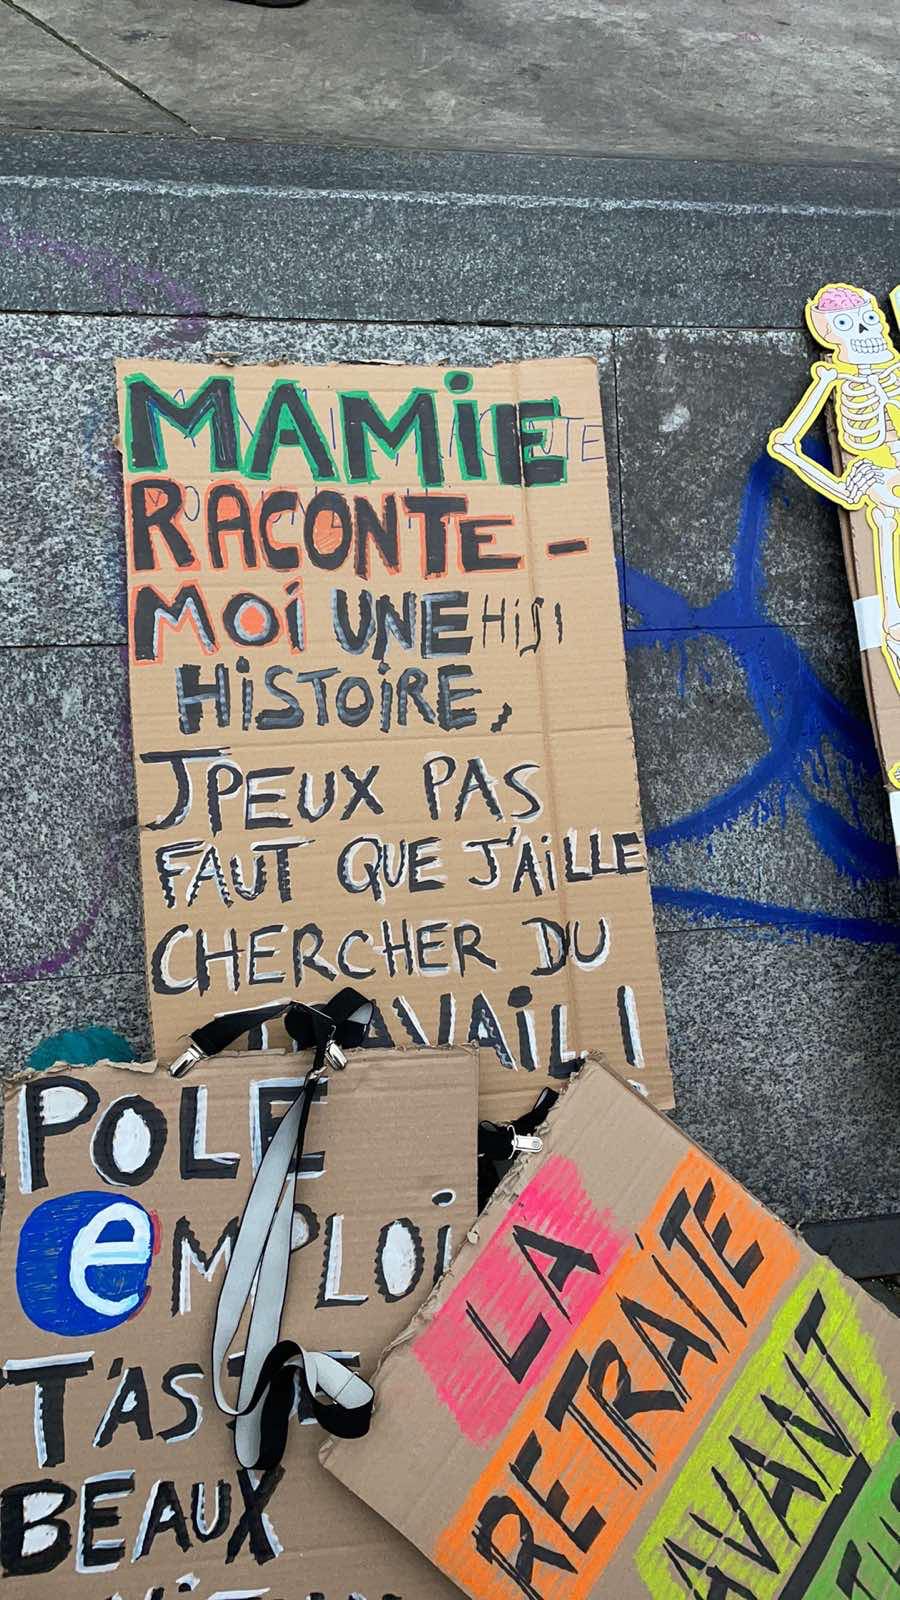 MAMiE
RACONTE-
MOi UNE HiSi
HiSTOiRE,
JPEUX PAS
FAUT QUE J'AiLLE
CHERCHER DU
TRAVAiL!
POLE
eMPLOi
T'AS
BEAUX
LA
RETRAiTE
AVANT